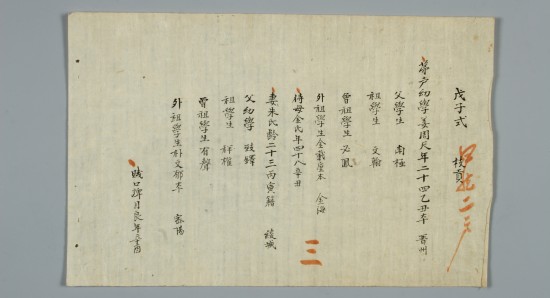 戊子式
第 戶幼學姜周 年二十四乙丑本晋州
父學生 南極
祖學生 文翰
曾祖學生 必鳳
外祖學生金載 本金海
侍母金氏年四十八辛丑
妻朱氏齡二十三丙寅籍綾城
父幼學
祖學生 權
曾祖學生 有
外祖學生朴文郁本密陽
賤口婢月良年 辛酉
三
二